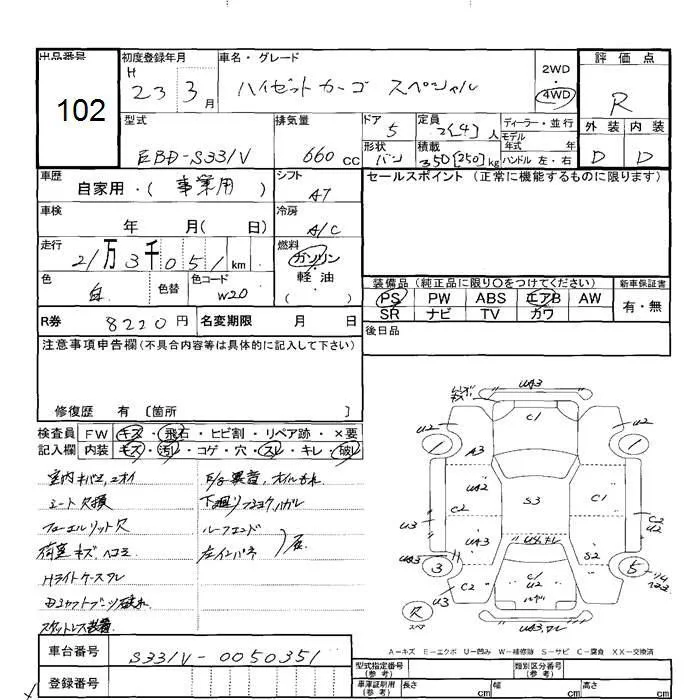 出品番号
102
初度登録年月
H 23 3月
車名・グレード
ハイゼットカーゴ スペシャル
2WD・4WD
評価点
R
外装 内装
D D
型式
EBD-S331V
排気量
660 cc
ドア
5
形状
バン
定員
2[4]人
積載
350[250]kg
ディーラー・並行
モデル年式 年
ハンドル 左・右
車歴
自家用・(事業用)
シフト
A7
車検
年 月( 日)
冷房
A/C
走行
21万3千051km
燃料
ガソリン
軽・油
( )
色
白
色替
色コード
W20
R券
8220円
名変期限 月 日
セールスポイント(正常に機能するものに限ります)
装備品(純正品に限り○をつけてください)
PS PW ABS エアB AW
SR ナビ TV カワ
新車保証書
有・無
後日品
注意事項申告欄(不具合内容等は具体的に記入して下さい)
修復歴 有 〔箇所 〕
検査員記入欄
FW キズ・飛石・ヒビ割・リペア跡・×要
内装 キズ・汚レ・コゲ・穴・スレ・キレ・破レ
室内キバミ、ニオイ
シート欠損
フューエルリット欠
荷室キズ、ヘコミ
Hライトケースワレ
スタットレス装着
E/G異音、オイルもれ
下廻りフショクハガレ
ルーフエンド
左インパネ
U43
C1
U2
U2
1
1
A3
UA2
C2
S3
C1
U3
C2
U2
UA3
S2
UA3
3
5
C2
U3
C1
U2
欠
スペア
A=キズ E=エクボ U=凹み W=補修跡 S=サビ C=腐食 XX=交換済
車台番号
S331V-0050351
登録番号
型式指定番号(参考)
類別区分番号(参考)
車庫証明用(参考)
長さ cm
幅 cm
高さ cm